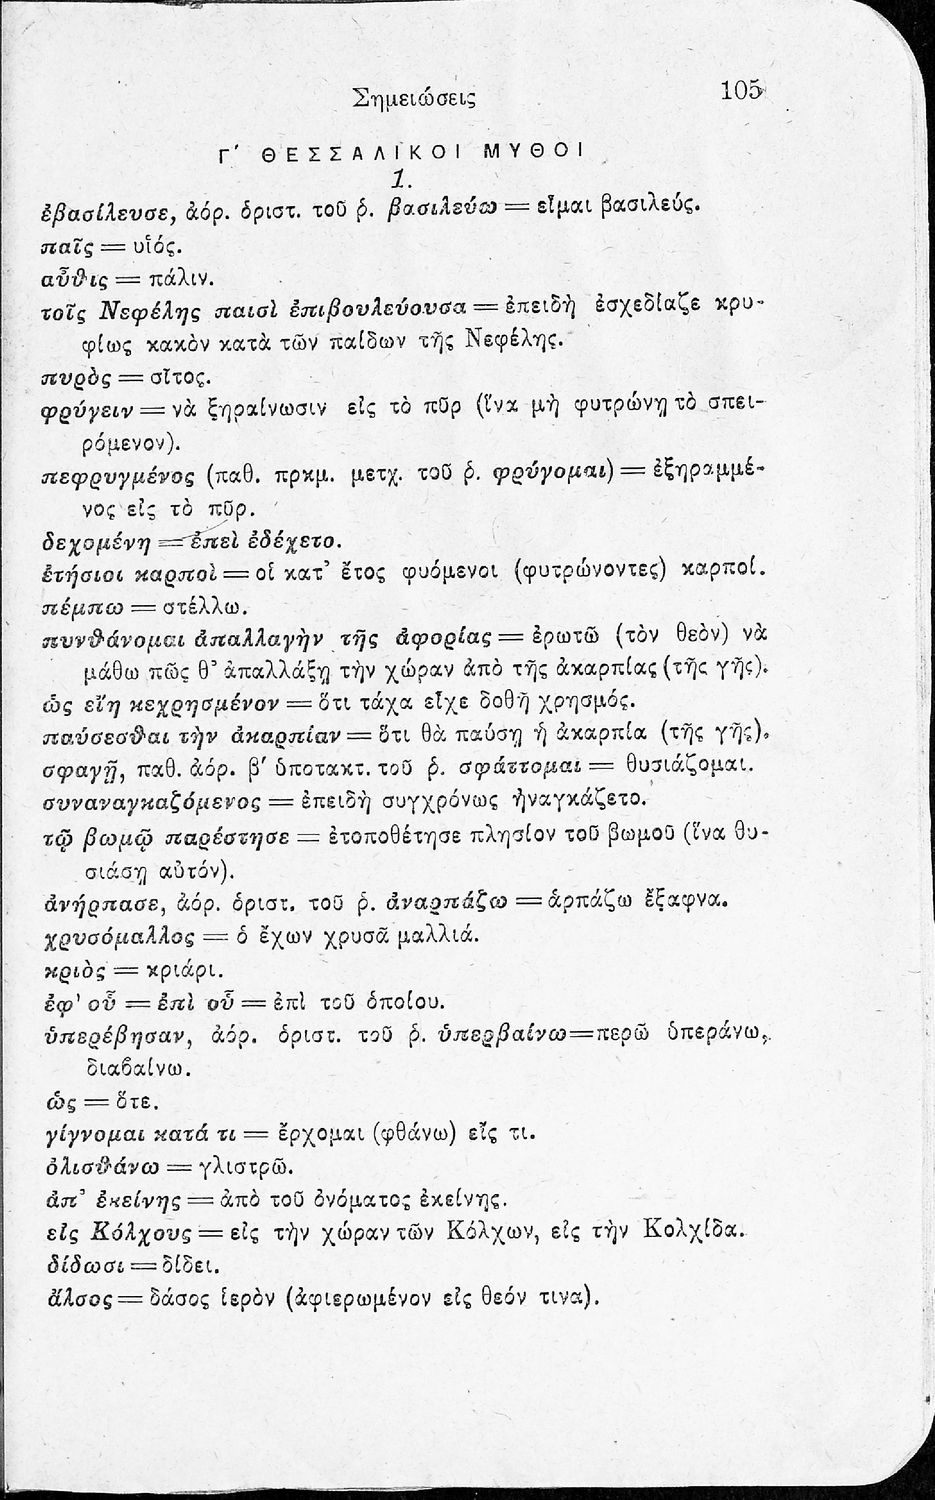 Σημειώσεις 105
Γ΄ ΘΕΣΣΑΛΙΚΟΙ ΜΥΘΟΙ
1.
ἐβασίλευσε, ἀόρ. ὁριστ. τοῦ ῥ. βασιλεύω = εἶμαι βασιλεύς.
παῖς = υἱός.
αὖθις = πάλιν.
τοῖς Νεφέλης παισὶ ἐπιβουλεύουσα = ἐπειδὴ ἐσχεδίαζε κρυ-
φίως κακὸν κατὰ τῶν παίδων τῆς Νεφέλης.
πυρὸς = σῖτος.
φρύγειν = νὰ ξηραίνωσιν εἰς τὸ πῦρ (ἵνα μὴ φυτρώνῃ τὸ σπει-
ρόμενον).
πεφρυγμένος (παθ. πρκμ. μετχ. τοῦ ῥ. φρύγομαι) = ἐξηραμμέ-
νος εἰς τὸ πῦρ.
δεχομένη = ἐπεὶ ἐδέχετο.
ἐτήσιοι καρποὶ = οἱ κατ᾽ ἔτος φυόμενοι (φυτρώνοντες) καρποί.
πέμπω = στέλλω.
πυνθάνομαι ἀπαλλαγὴν τῆς ἀφορίας = ἐρωτῶ (τὸν θεὸν) νὰ
μάθω πῶς θ᾽ ἀπαλλάξῃ τὴν χώραν ἀπὸ τῆς ἀκαρπίας (τῆς γῆς).
ὡς εἴη κεχρησμένον = ὅτι τάχα εἶχε δοθῆ χρησμός.
παύσεσθαι τὴν ἀκαρπίαν = ὅτι θὰ παύσῃ ἡ ἀκαρπία (τῆς γῆς).
σφαγῇ, παθ. ἀόρ. β΄ ὑποτακτ. τοῦ ῥ. σφάττομαι = θυσιάζομαι.
συναναγκαζόμενος = ἐπειδὴ συγχρόνως ἠναγκάζετο.
τῷ βωμῷ παρέστησε = ἐτοποθέτησε πλησίον τοῦ βωμοῦ (ἵνα θυ-
σιάσῃ αὐτόν).
ἀνήρπασε, ἀόρ. ὁριστ. τοῦ ῥ. ἀναρπάζω = ἁρπάζω ἔξαφνα.
χρυσόμαλλος = ὁ ἔχων χρυσᾶ μαλλιά.
κριὸς = κριάρι.
ἐφ᾽ οὗ = ἐπὶ οὗ = ἐπὶ τοῦ ὁποίου.
ὑπερέβησαν, ἀόρ. ὁριστ. τοῦ ῥ. ὑπερβαίνω = περῶ ὑπεράνω,
διαβαίνω.
ὡς = ὅτε.
γίγνομαι κατά τι = ἔρχομαι (φθάνω) εἴς τι.
ὀλισθάνω = γλιστρῶ.
ἀπ᾽ ἐκείνης = ἀπὸ τοῦ ὀνόματος ἐκείνης.
εἰς Κόλχους = εἰς τὴν χώραν τῶν Κόλχων, εἰς τὴν Κολχίδα.
δίδωσι = δίδει.
ἄλσος = δάσος ἱερὸν (ἀφιερωμένον εἰς θεόν τινα).